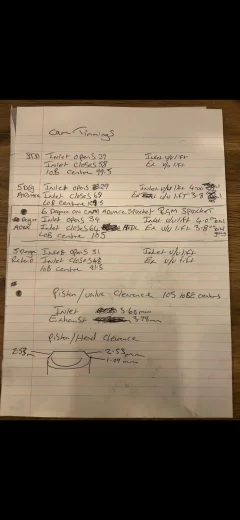 Cam Timings
STD Inlet opens 29 Inlet v/v lift
Inlet closes 58 Ex v/v lift
LOB centre 99.5
5 Deg Inlet opens 29 Inlet v/v lift 4.00
Advance Inlet closes 68 Ex v/v lift 3.8
LOB centre
6 Degree on cam Advance sprocket RGM sprocket
Inlet opens 34 Inlet v/v lift 4.0
Inlet closes 64 Ex v/v lift 3.8
LOB centre 105
Inlet opens 51 Inlet v/v lift
Retard Inlet closes 48 Ex v/v lift
LOB centre 91.5
Piston/valve Clearance 105 LOBE centres
Inlet 3.60mm
Exhaust 3.78mm
Piston/Head Clearance
2.53 2.53mm
1.04mm